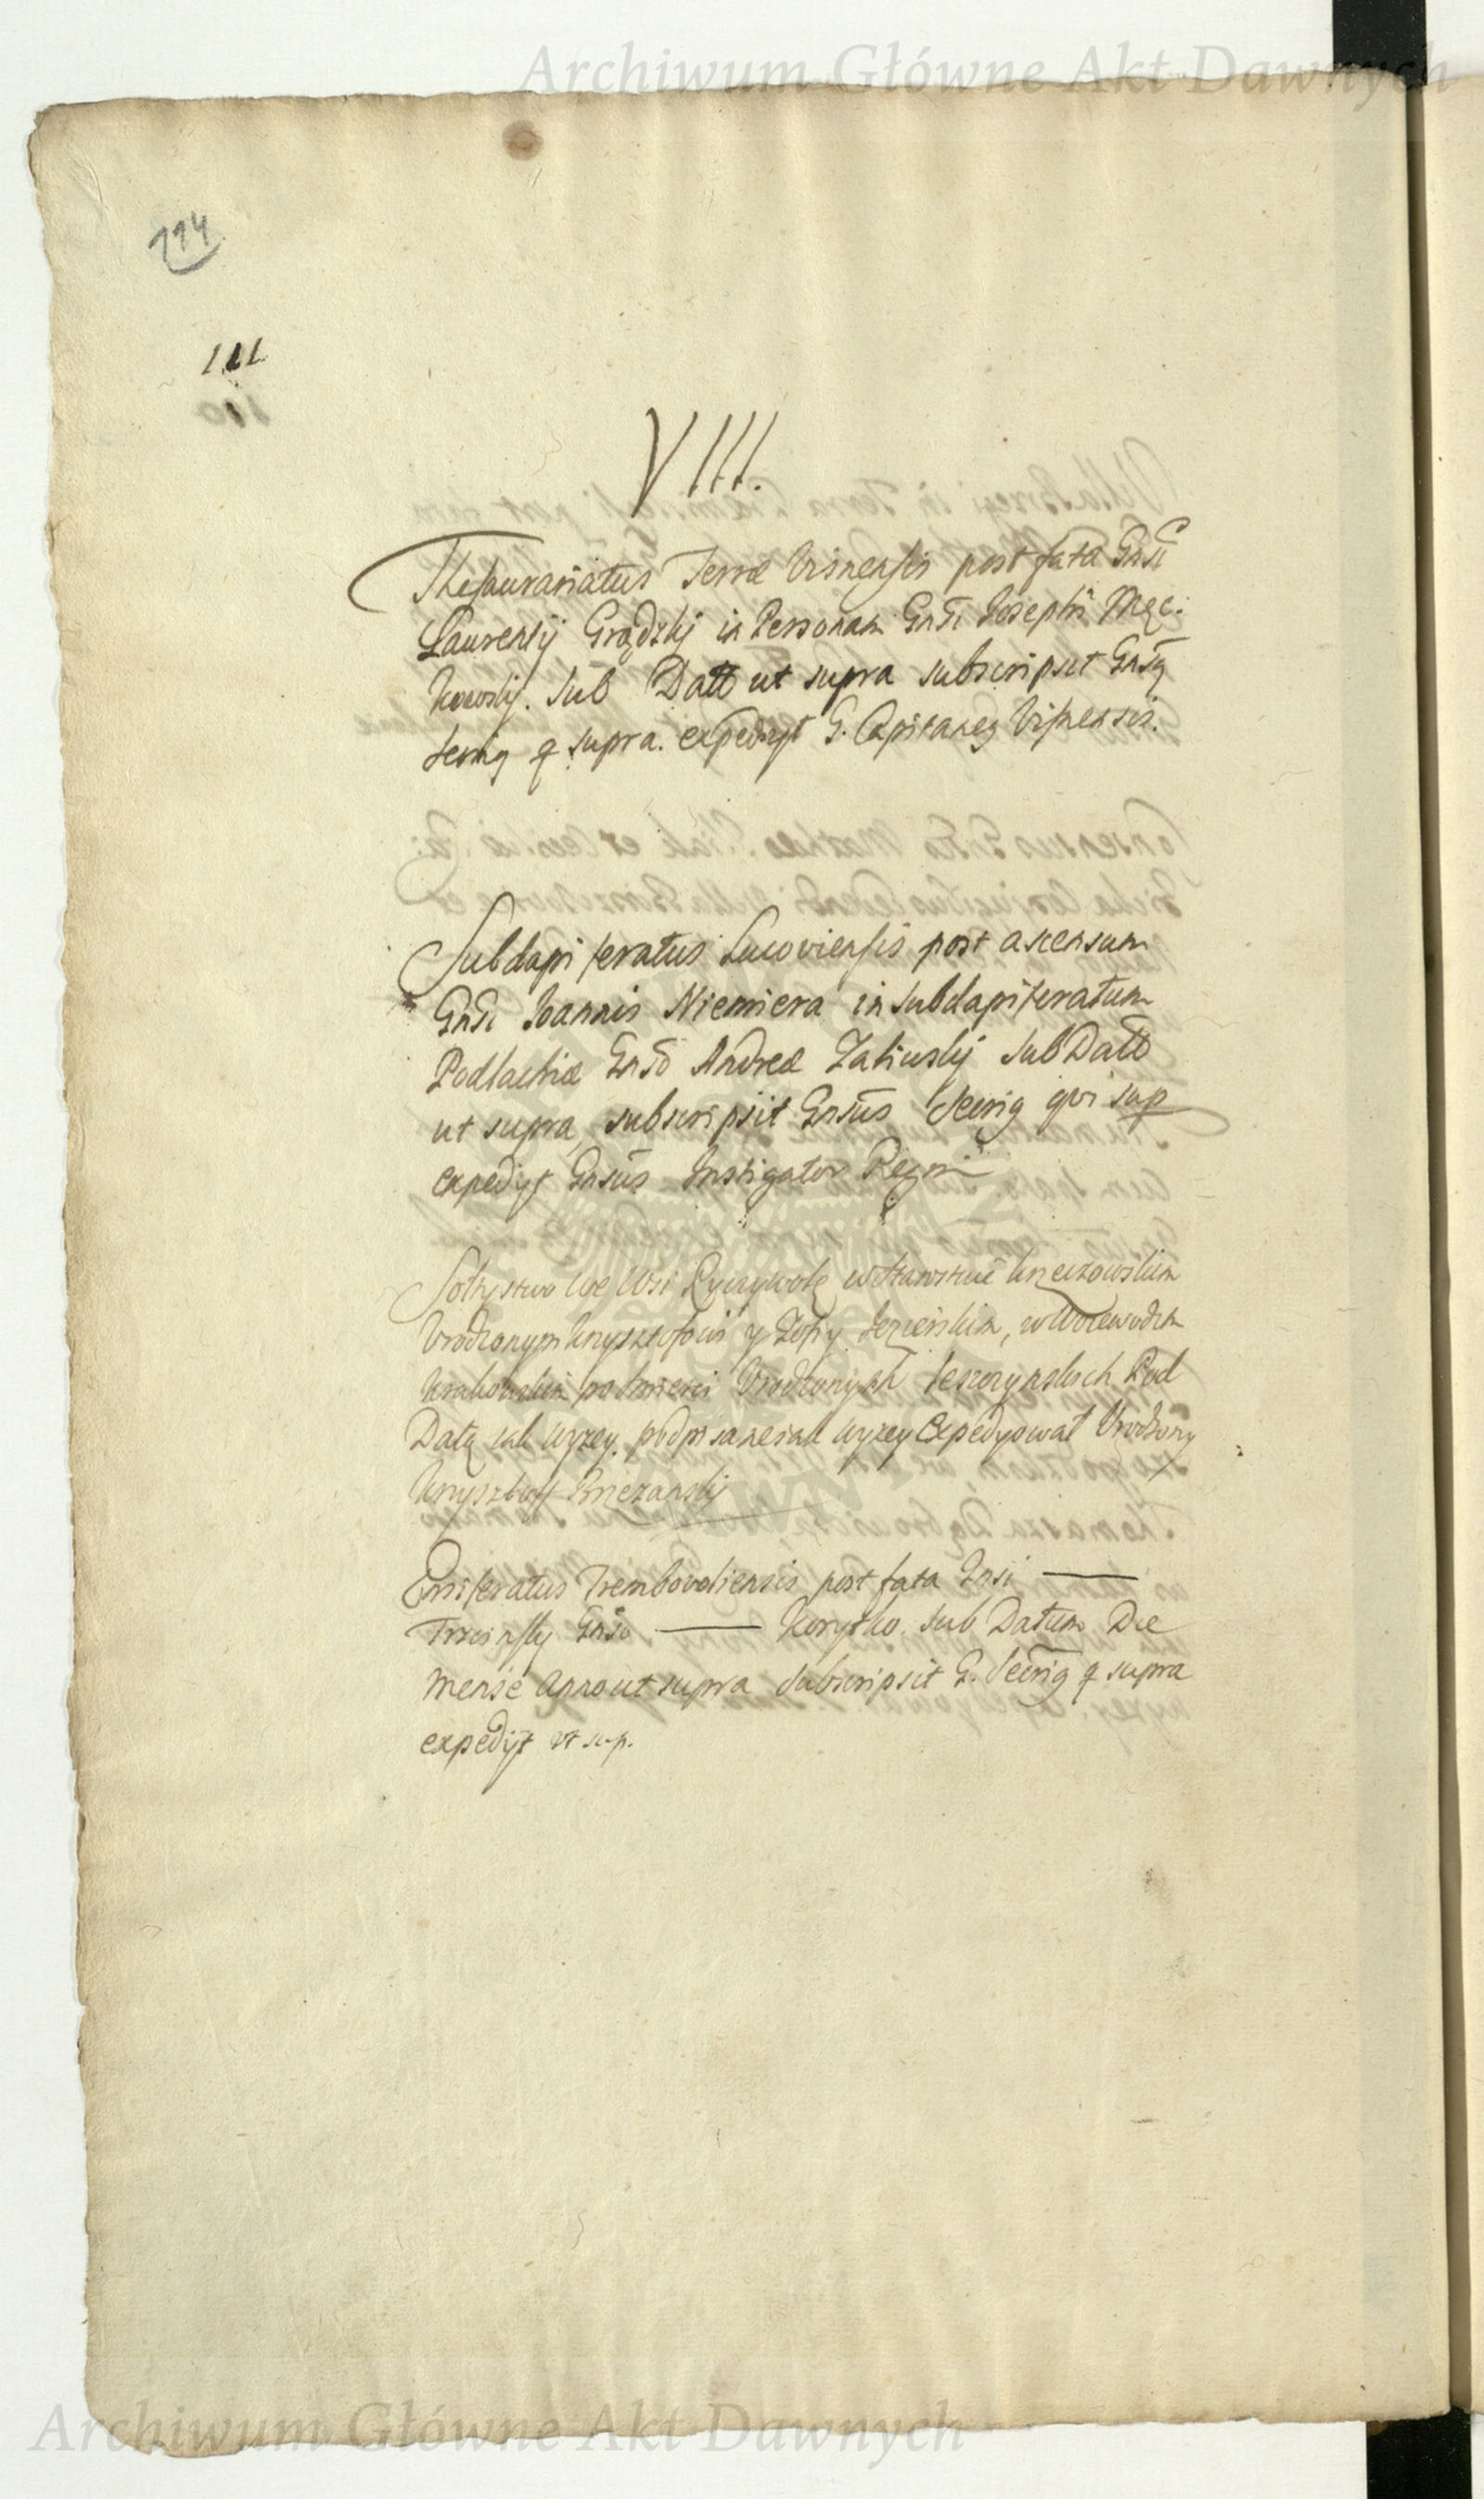 Archiwum Główne Akt Dawnych
114
111
110
VIII.
Thesaurariatus Terræ Visnensis post fata Gnsi
Laurentij Grądzkj in Personam Gnsi Josephi Męc:
kowskj. Sub Datt ut supra subscripsit Gnsq
q supra. expedyt G. Capitaneq Visnensis.
Subdapiferatus Lucoviensis post ascensum
Gnsi Joannis Niemiera in subdapiferatum
Podlachiæ Gnso Andreæ Zaliwskj Sub Datt
ut supra, subscripsit Gnsus Secrig qvi sup
expedyt Gnsus Instigator Regni
Sołtystwo we Wsi Ryczywołe w Starostwie
Vrodzonym Krysztofowi y Zofiy, w Woiewodzt:
Krakowskim po śmierci Vrodzonych Pod
Datą iak wyzey. podpisane iak wyzey Expedyował Vrodzony
Krysztoff
Ensiferatus Trembovoliensis post fata Gnsi ——
Trzcinskj Gnso —— Korytko. Sub Datum Die
Mense Anno ut supra Subscripsit G. Secrig q supra
expedijt vt sup.
Archiwum Główne Akt Dawnych